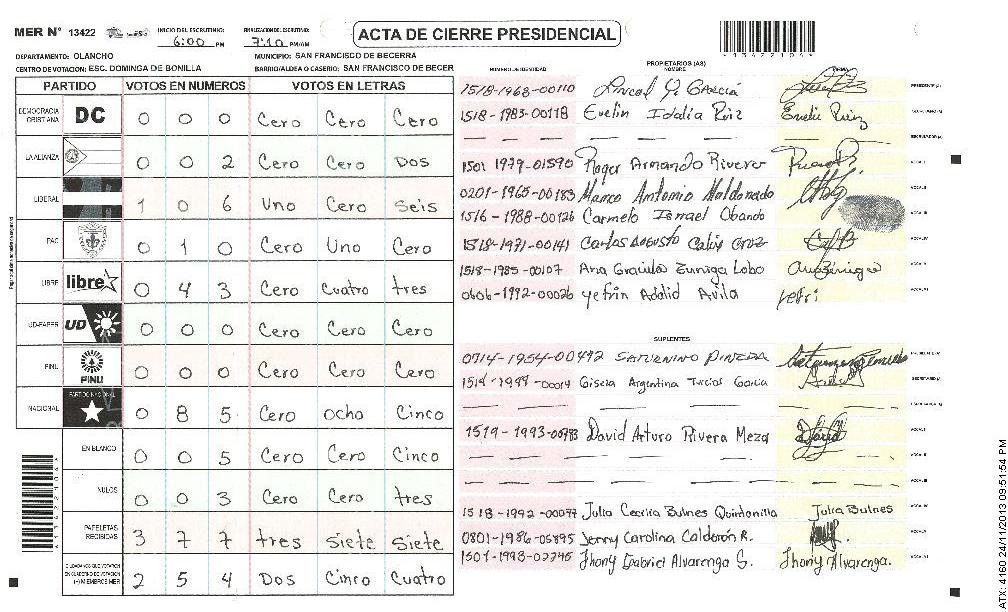 MER N° 13422
INICIO DEL ESCRUTINIO: 6:00 PM
FINALIZACION DEL ESCRUTINIO: 7:10 PM/AM
ACTA DE CIERRE PRESIDENCIAL
DEPARTAMENTO: OLANCHO
MUNICIPIO: SAN FRANCISCO DE BECERRA
CENTRO DE VOTACION: ESC. DOMINGA DE BONILLA
BARRIO/ALDEA O CASERIO: SAN FRANCISCO DE BECER
PARTIDO VOTOS EN NUMEROS VOTOS EN LETRAS
DEMOCRACIA CRISTIANA DC 0 0 0 Cero Cero Cero
LA ALIANZA 0 0 2 Cero Cero Dos
LIBERAL 1 0 6 Uno Cero Seis
PAC 0 1 0 Cero Uno Cero
LIBRE libre 0 4 3 Cero Cuatro tres
UD-FAPER UD 0 0 0 Cero Cero Cero
PINU PINU 0 0 0 Cero Cero Cero
NACIONAL PARTIDO NACIONAL 0 8 5 Cero ocho Cinco
EN BLANCO 0 0 5 Cero Cero Cinco
NULOS 0 0 3 Cero Cero tres
PAPELETAS RECIBIDAS 3 7 7 tres Siete Siete
CIUDADANOS QUE VOTARON EN CUADERNO DE VOTACION (+) MIEMBROS MER 2 5 4 Dos Cinco Cuatro
PROPIETARIOS (AS)
NUMERO DE IDENTIDAD NOMBRE FIRMA
1518-1968-00110 García PRESIDENTE (A)
1518-1983-00118 Evelin Idalia Ruiz Evelin Ruiz SECRETARIO (A)
— — — ESCRUTADOR (A)
1501 1979-01590 Roger Armando Rivera VOCAL I
0201-1965-00183 Marco Antonio Maldonado VOCAL II
1516-1988-00126 Carmelo Ismael Obando VOCAL III
1518-1971-00141 Carlos Augusto Cruz VOCAL IV
1518-1985-00107 Ana Graciela Zuniga Lobo VOCAL V
0606-1992-00026 yefrin Adalid Avila yefri VOCAL VI
SUPLENTES
0714-1954-00492 SATURNINO PINEDA PRESIDENTE (A)
Gisela Argentina Turcios Garcia SECRETARIO (A)
— — — ESCRUTADOR (A)
1519-1993-00783 David Arturo Rivera Meza David VOCAL I
— — — VOCAL II
— — — VOCAL III
1518-1992-00077 Julia Cecilia Bulnes Quintanilla Julia Bulnes VOCAL IV
0801-1986-05895 Jenny Carolina Calderón R. VOCAL V
1501-1993-02245 Jhony Gabriel Alvarenga S. Jhony Alvarenga. VOCAL VI
ATX: 4160 24/11/2013 09:51:54 PM